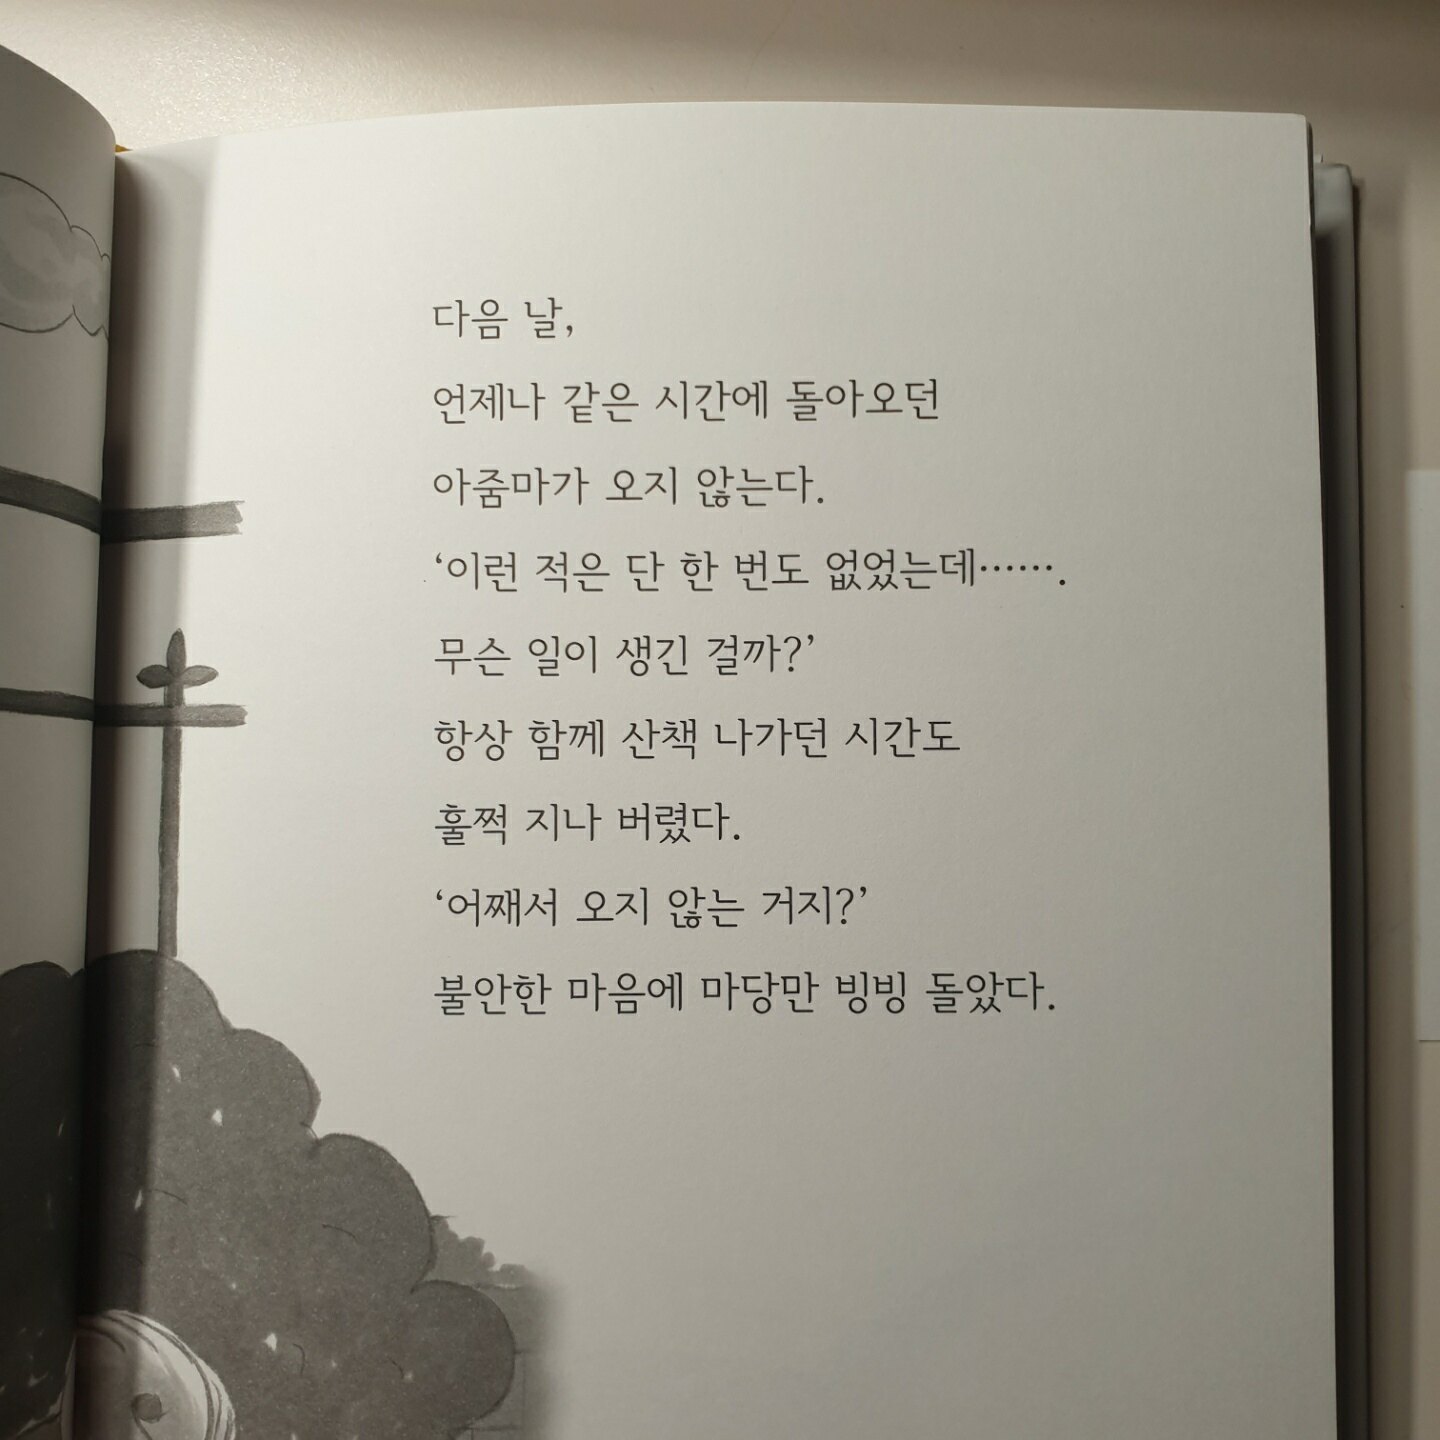 다음 날,
언제나 같은 시간에 돌아오던
아줌마가 오지 않는다.
‘이런 적은 단 한 번도 없었는데…….
무슨 일이 생긴 걸까?’
항상 함께 산책 나가던 시간도
훌쩍 지나 버렸다.
‘어째서 오지 않는 거지?’
불안한 마음에 마당만 빙빙 돌았다.